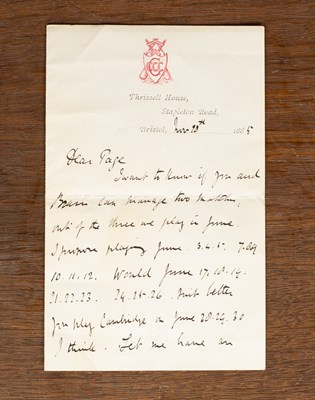 GCCC
Thrissell House,
Stapleton Road,
Bristol, Nov 20th 1885
Dear Page
I want to know if you and
can manage two matches,
out of the three we play in June.
I propose playing June. 3.4.5.
10.11.12. Would June 17.18.19.
21.22.23. 24.25.26. suit better
You play Cambridge on June 28.29.30
I think. Let me have an